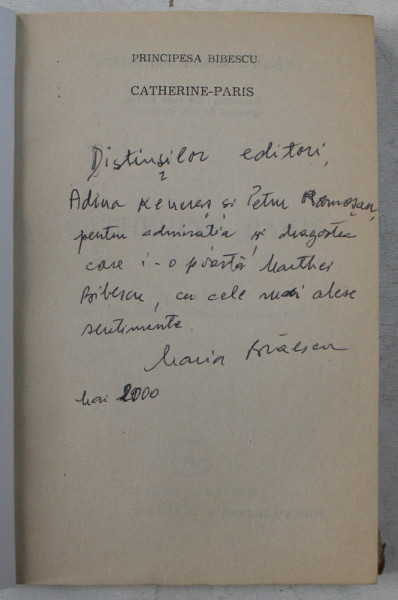 PRINCIPESA BIBESCU
CATHERINE-PARIS
Distinșilor editori,
Adina Kenereș și Petru Romoșan,
pentru admirația și dragostea
care i-o poartă Marthei
Bibescu, cu cele mai alese
sentimente
Maria Brăescu
Mai 2000